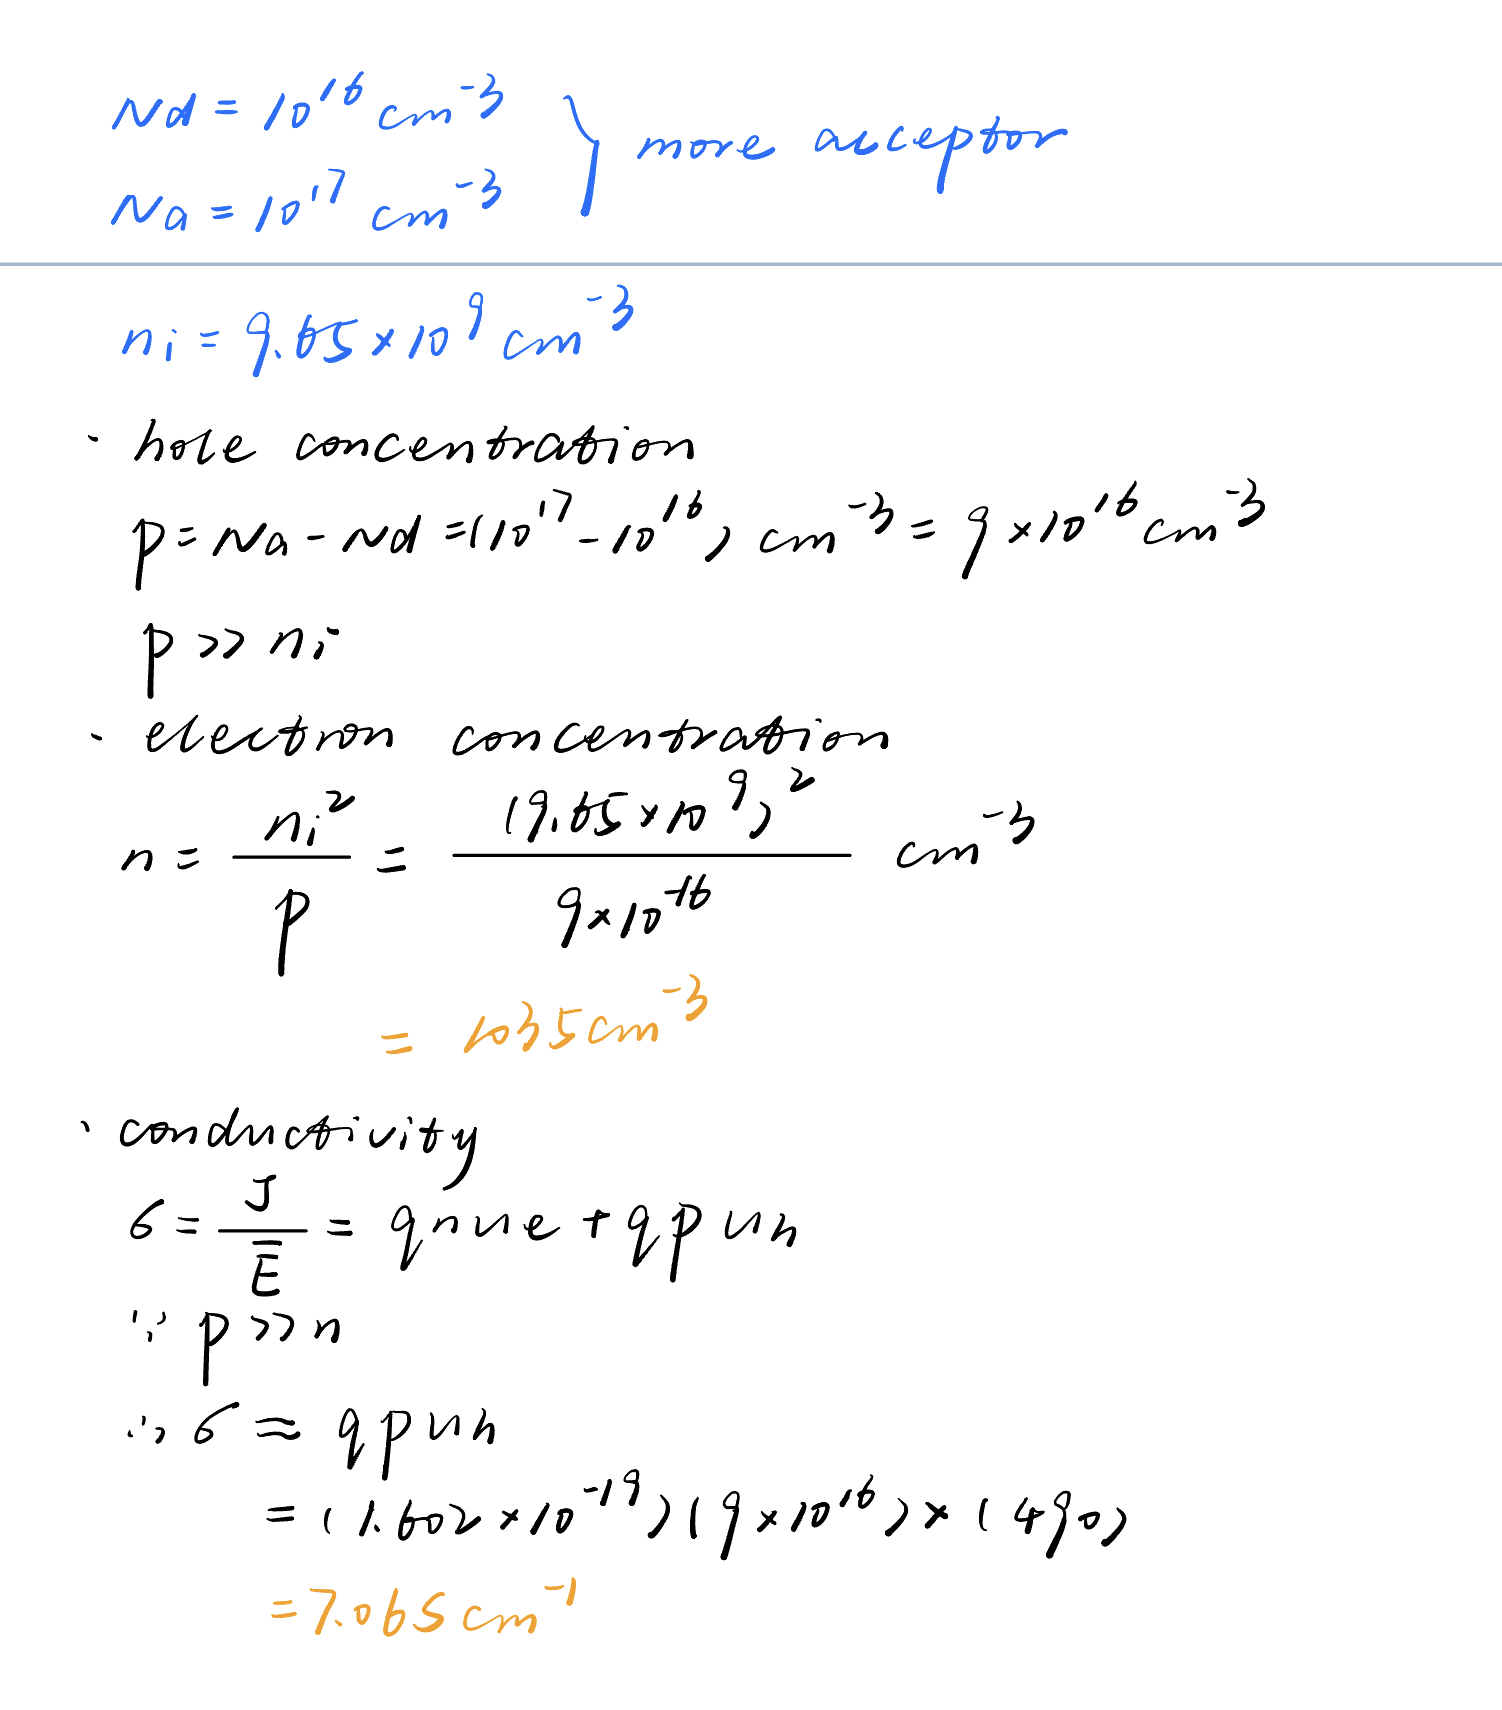 Nd = 10^16 cm^-3
Na = 10^17 cm^-3
} more acceptor
ni = 9.65×10^9 cm^-3
· hole concentration
p = Na - Nd = (10^17 - 10^16) cm^-3 = 9×10^16 cm^-3
p >> ni
· electron concentration
n = ni^2 / p = (9.65×10^9)^2 / 9×10^16 cm^-3
= 1035 cm^-3
· conductivity
6 = J / E = qnue + qpuh
∵ p >> n
∴ 6 ≈ qpuh
= (1.602×10^-19)(9×10^16)×(490)
= 7.065 cm^-1